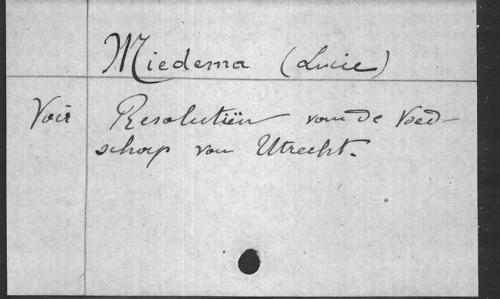 Miedema (Lucie)
Voir Resolutiën van de Vroed-
schap van Utrecht.